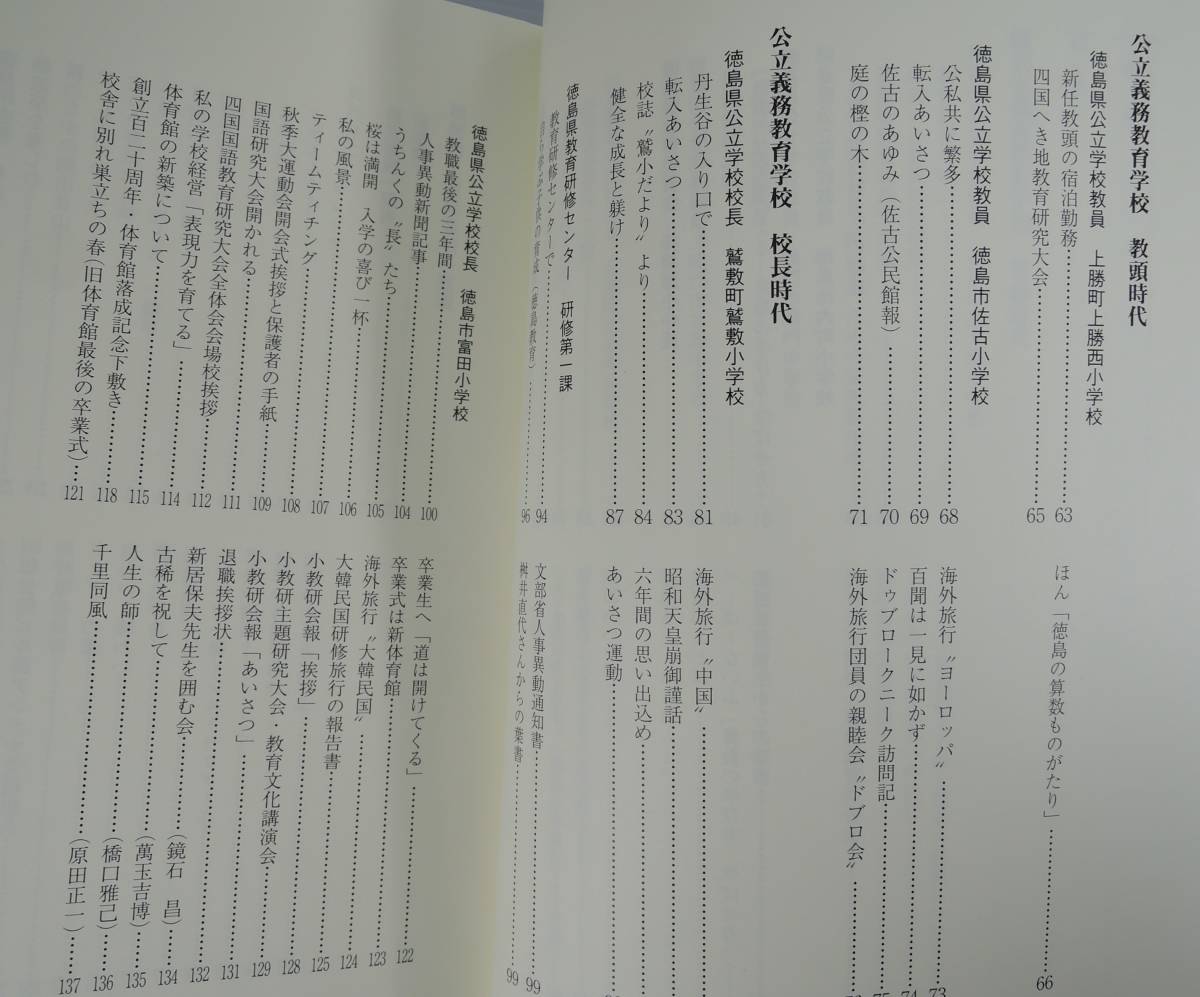 公立義務教育学校　教頭時代
徳島県公立学校教員　上勝町上勝西小学校
新任教頭の宿泊勤務……63
四国へき地教育研究大会……65
ほん「徳島の算数ものがたり」……66
徳島県公立学校教員　徳島市佐古小学校
公私共に繁多……68
転入あいさつ……69
佐古のあゆみ（佐古公民館報）……70
庭の樫の木……71
海外旅行〝ヨーロッパ〟……73
百聞は一見に如かず……74
ドゥブロークニーク訪問記……75
海外旅行団員の親睦会〝ドブロ会〟……
公立義務教育学校　校長時代
徳島県公立学校校長　鷲敷町鷲敷小学校
丹生谷の入り口で……81
転入あいさつ……83
校誌〝鷲小だより〟より……84
健全な成長と躾け……87
海外旅行〝中国〟……
昭和天皇崩御謹話……
六年間の思い出込め……
あいさつ運動……
徳島県教育研修センター　研修第一課
教育研修センターで……94
（徳島教育）……96
文部省人事異動通知書……99
桝井直代さんからの葉書……99
徳島県公立学校校長　徳島市富田小学校
教職最後の三年間……100
人事異動新聞記事……104
うちんくの〝長〟たち……105
桜は満開　入学の喜び一杯……106
私の風景……107
ティームティチング……108
秋季大運動会開会式挨拶と保護者の手紙……109
国語研究大会開かれる……111
四国国語教育研究大会全体会会場校挨拶……112
私の学校経営「表現力を育てる」……114
体育館の新築について……115
創立百二十周年・体育館落成記念下敷き……118
校舎に別れ巣立ちの春（旧体育館最後の卒業式）…121
卒業生へ「道は開けてくる」……122
卒業式は新体育館……123
海外旅行〝大韓民国〟……124
大韓民国研修旅行の報告書……125
小教研会報「挨拶」……128
小教研主題研究大会・教育文化講演会……129
小教研会報「あいさつ」……131
退職挨拶状……132
新居保夫先生を囲む会……
古稀を祝して……（鏡石　昌）……134
人生の師……（萬玉吉博）……135
千里同風……（橋口雅己）……136
（原田正一）……137